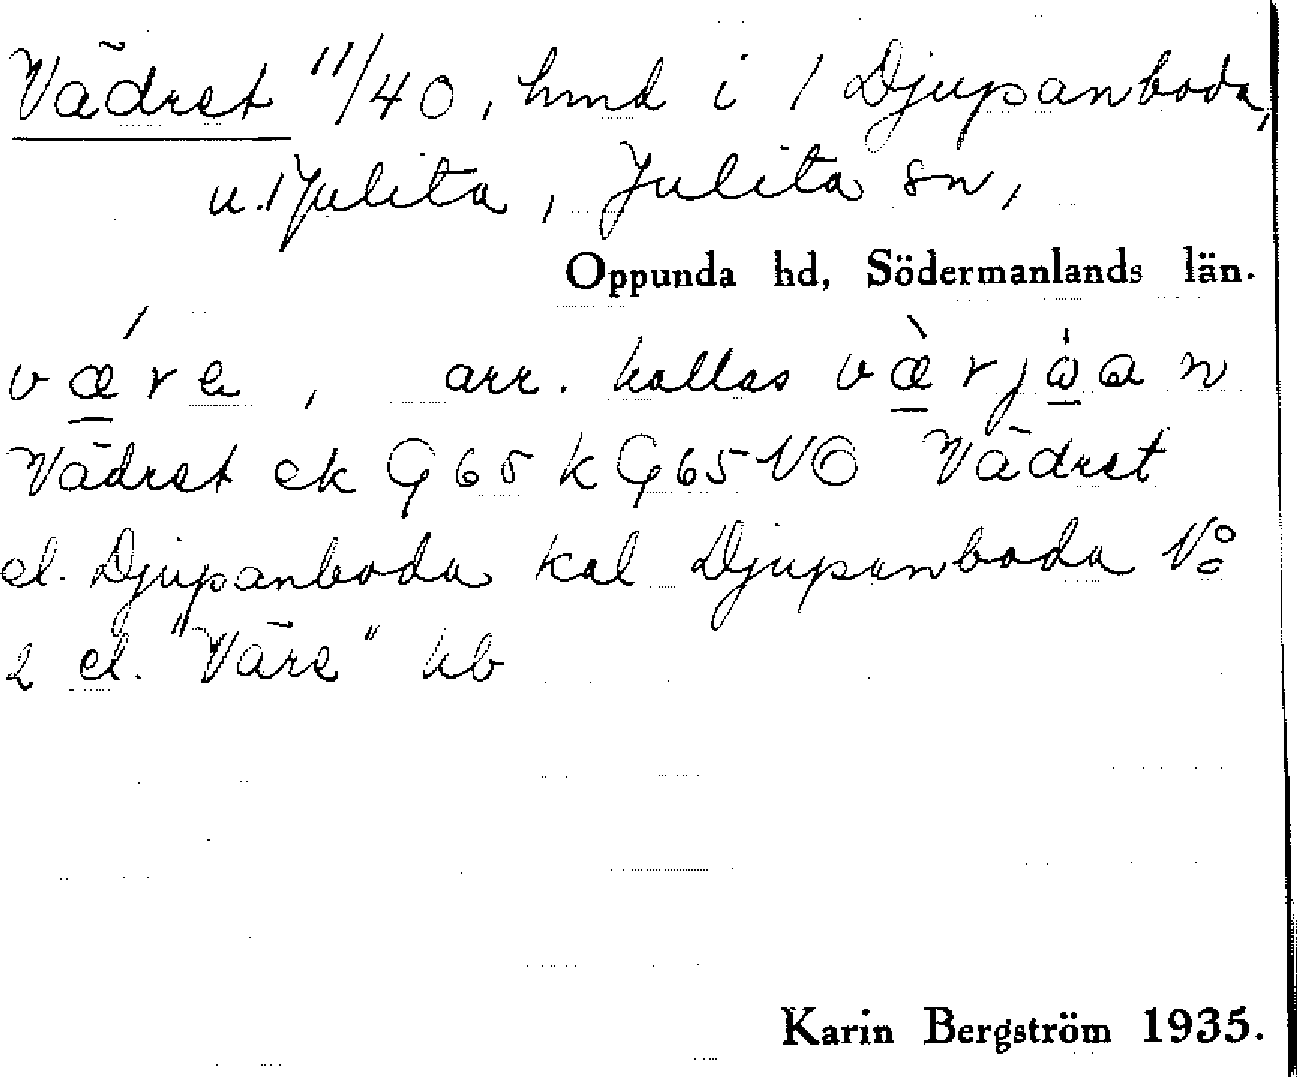 Vädret 11/40, hmd i 1 Djupanboda,
u. Julita, Julita sn,
Oppunda hd, Södermanlands län.
vǽre, arr. kallas
Vädret ek G 65 k G 65 NO Vädret
el. Djupanboda kal Djupanboda No
2 el. "Väre" hb
Karin Bergström 1935.